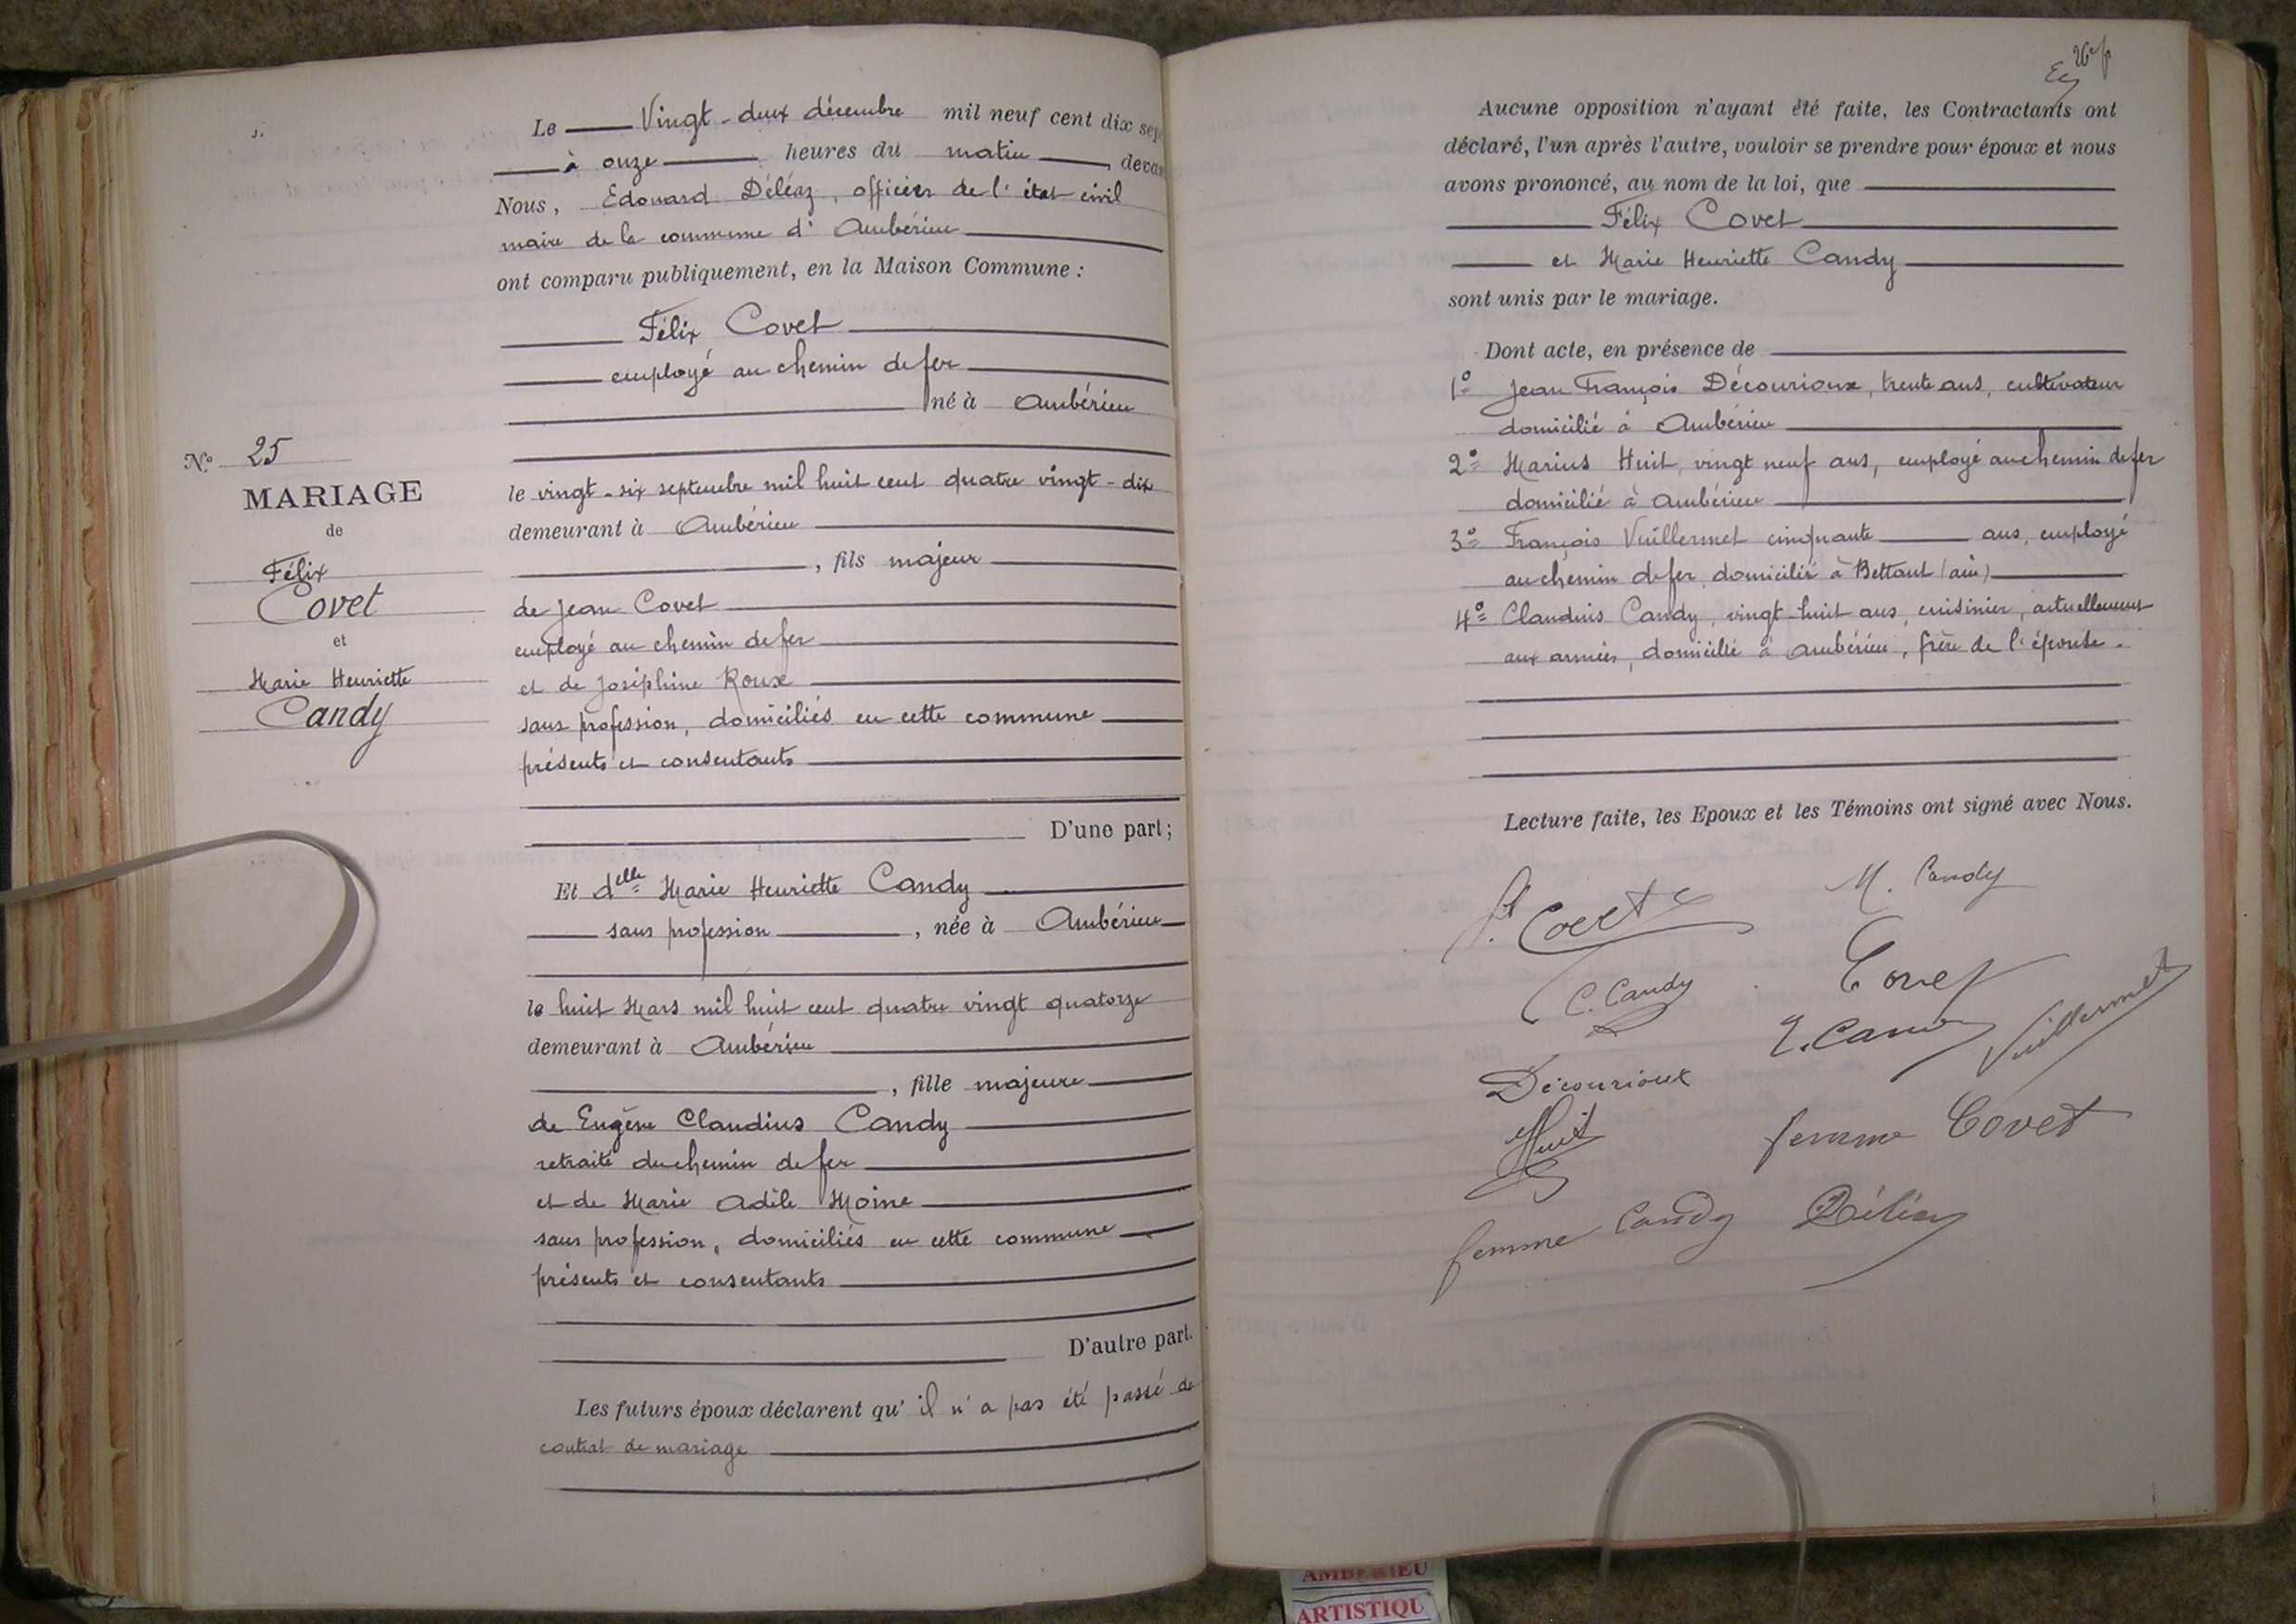 Le Vingt-deux décembre mil neuf cent dix sep
à onze heures du matin, devan
Nous, Edouard Déléaz, officier de l'état civil
maire de la commune d' Ambérieu
ont comparu publiquement, en la Maison Commune :
Félix Covet
employé au chemin de fer
né à Ambérieu
le vingt-six septembre mil huit cent quatre vingt-dix
demeurant à Ambérieu
, fils majeur
de Jean Covet
employé au chemin de fer
et de Joséphine Roux
sans profession, domiciliés en cette commune
présents et consentants
D'une part ;
Et delle Marie Henriette Candy
sans profession, née à Ambérieu
le huit Mars mil huit cent quatre vingt quatorze
demeurant à Ambérieu
, fille majeure
de Eugène Claudius Candy
retraité du chemin de fer
et de Marie Adèle Moine
sans profession, domiciliés en cette commune
présents et consentants
D'autre part.
Les futurs époux déclarent qu' il n'a pas été passé de
contrat de mariage
No 25
MARIAGE
de
Félix
Covet
et
Marie Henriette
Candy
Aucune opposition n'ayant été faite, les Contractants ont
déclaré, l'un après l'autre, vouloir se prendre pour époux et nous
avons prononcé, au nom de la loi, que
Félix Covet
et Marie Henriette Candy
sont unis par le mariage.
Dont acte, en présence de
1o Jean François Décourioux, trente ans, cultivateur
domicilié à Ambérieu
2o Marius Huit, vingt neuf ans, employé au chemin de fer
domicilié à Ambérieu
3o François Vuillermet cinquante ans, employé
au chemin de fer, domicilié à Bettant (ain)
4o Claudius Candy, vingt-huit ans, cuisinier, actuellement
aux armées, domicilié à Ambérieu, frère de l'épouse.
Lecture faite, les Epoux et les Témoins ont signé avec Nous.
M. Candy
C. Candy
Covet
Vuillermet
Décourioux
Huit
femme Covet
femme Candy
Déléaz
AMBERIEU
ARTISTIQU